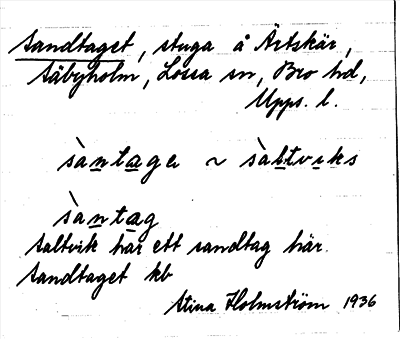 Sandtaget, stuga å Ärtskär,
Säbyholm, Lossa sn, Bro hd,
Upps. l.
sàntage ~ sàltviks
sàntag
Saltvik här ett sandtag här.
Sandtaget kb
Stina Holmström 1936